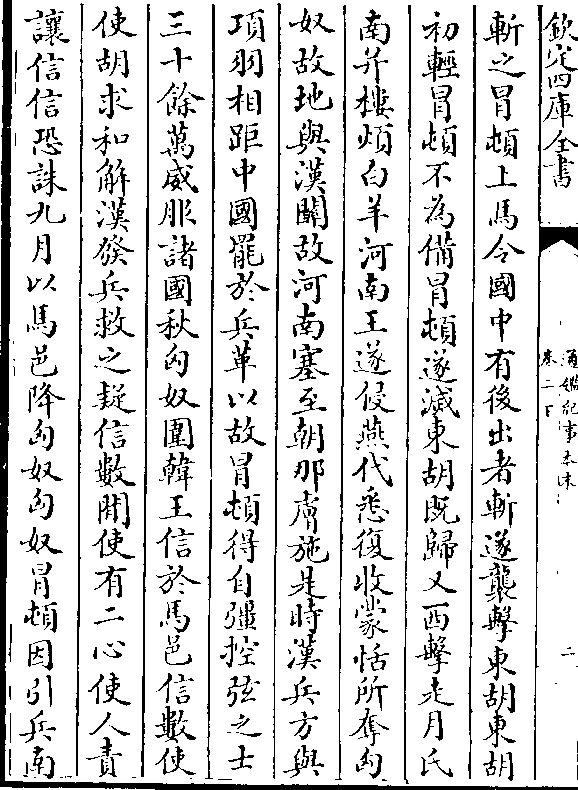 欽定四庫全書
通鑑紀事本末
卷二下
二
斬之冒頓上馬令國中有後出者斬遂襲擊東胡東胡
初輕冒頓不為備冒頓遂滅東胡既歸又西擊走月氏
南并樓煩白羊河南王遂侵燕代悉復收蒙恬所奪匈
奴故地與漢關故河南塞至朝那膚施是時漢兵方與
項羽相距中國罷於兵革以故冒頓得自彊控弦之士
三十餘萬威服諸國秋匈奴圍韓王信於馬邑信數使
使胡求和解漢發兵救之疑信數閒使有二心使人責
讓信信恐誅九月以馬邑降匈奴匈奴冒頓因引兵南